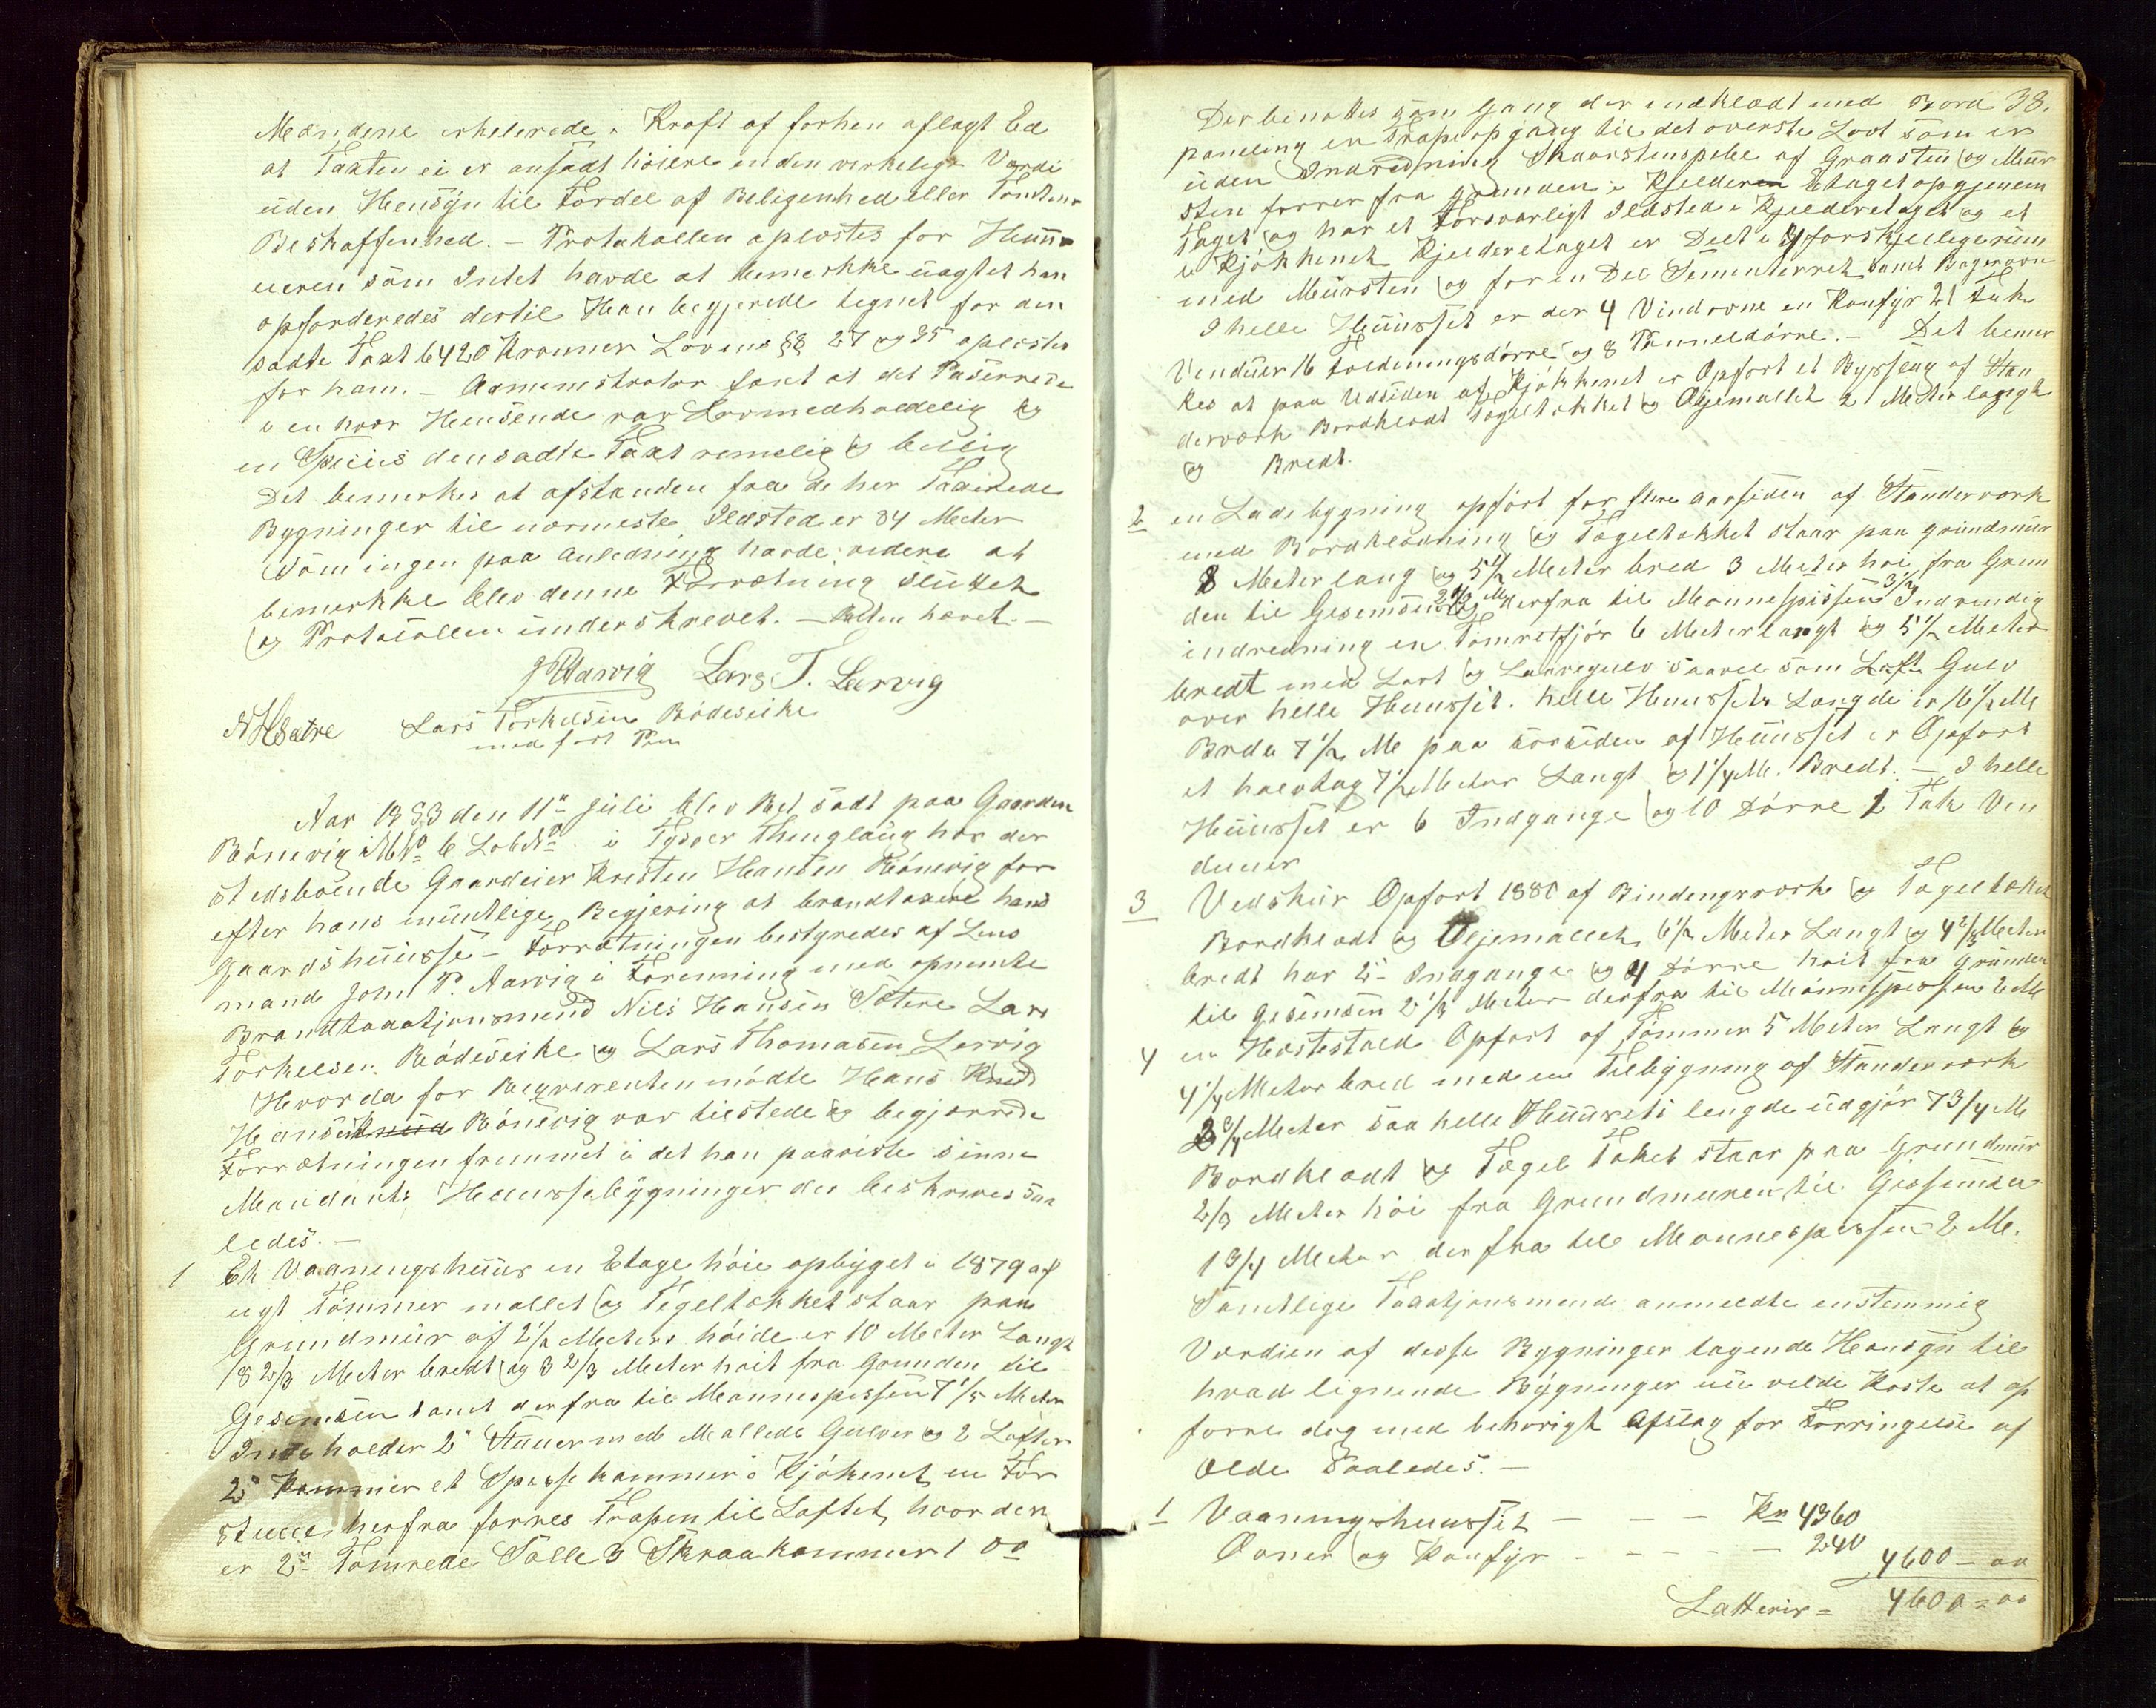 Mændene erkelerede i Kraft af forhen aflagt Ed
at Taxten ei er ansadt höiere enden verkelige Værdi
uden Hensÿn til Fordel af Beligenhed eller Tomtens
Beskaffenhed. – Protokollen oplæstes for Huus
eieren som Intet havde at bemerkke uagtet han
opforderedes dertil Han begjerede tegnet for den
sadte Taxt 6420 Kronner Lovens §§ 27 og 35 oplæstes
for ham. – Administrator fant at det Paserrede
i en hver Henseende var Lovmedholdelig og
en Species densadte Taxt remelig og billig
Det bemerkes at afstanden fra de her Taxerede
Bygninger til nærmeste Ildsted er 84 Meter
Som ingen paa Anledning havde videre at
bemerkke blev denne Forrætning sluttet
og Protocollen underskrevet. – Retten hævet. –
J P Aarvig Lars T. Lervig
N H Sætre Lars Torkelsen Bódeseike
med fort Pen
Aar 1883 den 11te Juli blev Ret sadt paa Gaarden
Rönevig MNo 6 LobNo i Tysver Thinglaug hos der
stedsboende Gaardeier Kresten Hansen Rönevig for
efter hans mündtlige Begjering at brandtaxere hans
Gaardshuusse – Forrætningen bestyredes af Lens
mand John P. Aarvig i Forenning med opnevnte
Brandtaxatjonsmend Nils Hansen Sætere Lars
Torkelsen Bódeseike og Lars Thomasen Lervig
Hvorda for Reqverenten mödte Hans Knud
Hansen Rönevig var tilstede og begjærede
Forrætningen fremmet i det han paaviste sinne
Mandants Huussebÿgninger der beskrives saa
ledes. –
1 Et Vaaningshuus en Etage höie opbÿget i 1879 af
nyt Tömmer mallet og Tegeltækket staar paa
Grundmür af 2 1/2 Meters höide er 10 Meter Langt
8 2/3 Meter bredt og 3 2/3 Meter hoit fra Grunden til
Gesemsen samt derfra til Mønnespissen 7 1/5 Meter
Inde holder 2 Stuuer med Mallede Gulver og 2 Lofter
2 Kammer et Spesse kammer i Kjökenet en For
stue herfra förres Trapen til Loftet, hvor der
er 2 Tomrede Salle 3 Skraakammer 1 do
Der benøttes som Gang der indklædt med Bord 38.
paneling en Trapeopgang til det øverste Lovt som er
uden Indredning Skaarstenspibe af Graasten og Muur
sten förrer fra grunden i Kjelderen Etaget op gjenem
Taget og har et Forsvarligt Ildsted i Kjelderetaget og et
i Kjökkenet Kjelderetaget er Delt i 4 forskjellige rum
med Mürsten og for en Del Sementerret samt Bagerovn
I helle Huusset er der 4 Vindovne en Konfyr 21 Fak
Venduer 16 Foldeningsdörre og 8 Panneldörre. – Det bemer
kes at paa Udsiden af Kjökkenet er Opfort et Bysseag af Stan
derværk Bordklædt Tegeltækket og Oljemallet 2 Meter langt
og Bredt.
2 en Ladebygning opfört for flere aar siden af Standerværk
med Bordklædning og Tegeltækket staar paa grundmür
8 Meter lang og 5 1/2 Meter bred 3 Meter hoi fra Grun
den til Gesemsen og derfra til Monnespissen 3 1/2 Indvendig
indredning en Tomret fjör 6 Meter langt og 5 1/2 Meter
bredt med Lavt og Laavegulv saavel som Loft Gulv
over helle Huusset. helle Huussets Længde er 16 1/2 Me
Brede 7 1/2 Me paa sörsiden af Huusset er Opfort
et halvtag 7 1/2 Meter Langt og 1 1/4 Me. Bredt. – I helle
Huusset er 6 Indgange og 10 Dörre 2 Fak Ven
duer
3 Vedskür Opfort 1880 af Bindengsværk og Tegeltækket
Bordklædt og Oljemallet, 6 1/2 Meter Langt og 4 2/3 Meter
bredt har 2 Indgange og 4 dörre hoit fra Grunden
til Gesemsen 2 1/3 Meter derfra til Mönnespessen 2 Me
4 en Hestestald Opfort af Tömmer 5 Meter Langt og
4 1/4 Meter bred med en Tilbygning af Standerværk
2 3/4 Meter saa helle Huusets lengde udgjör 7 3/4 Me
Bordklædt og Tegel Taket staar paa Grundmür
2/3 Meter höi fra Grundmuren til Gissemsen
1 3/4 Meter derfra tel Monnespissen 2 Me.
Samtlige Taxatjonsmend anmeldte enstemmig
Værdien af desse Bygninger tagende Hensÿn til
hvad lignende Bÿgninger nü vilde Koste at op
förre dog med behörigt Afslag for Forringelse af
Ælde saaledes. –
1 Vaaningshuusset – – – Kr 4360
Ovner og Konfÿr – – – – – 240
4600 – oo
Latterir = 4600 = oo